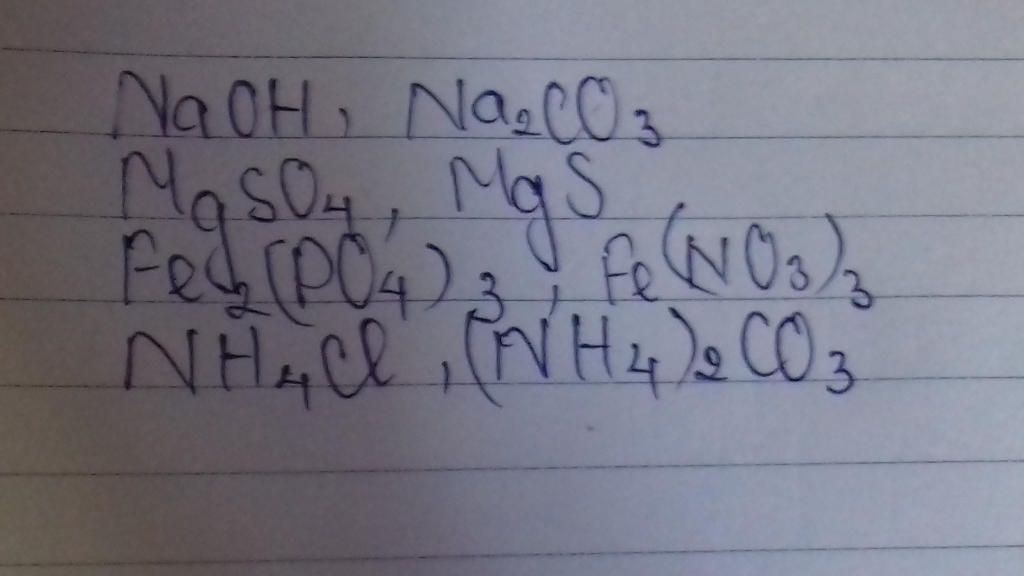 NaOH, Na₂CO₃
MgSO₄, MgS
Fe₂(PO₄)₃, Fe(NO₃)₃
NH₄Cl, (NH₄)₂CO₃